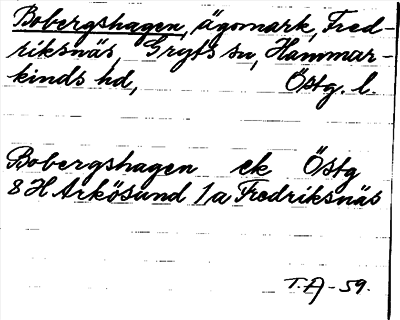 Bobergshagen, ägomark, Fred-
riksnäs, Gryts sn, Hammar-
kinds hd, Östg. l.
Bobergshagen ek Östg
8 H Arkösund 1 a Fredriksnäs
T.A-59.